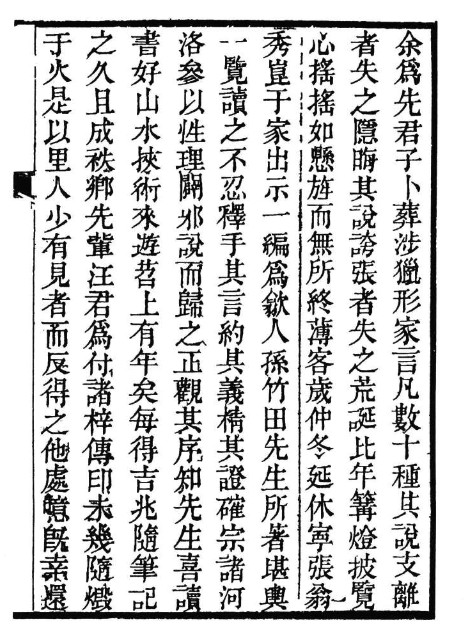 余爲先君子卜葬涉獵形家言凡數十種其說支離
者失之隱晦其說誇張者失之荒誕比年篝燈披覽
心搖搖如懸旌而無所終薄客歲仲冬延休寧張翁
秀崑于家出示一編爲歙人孫竹田先生所著堪輿
一覽讀之不忍釋手其言約其義精其證確宗諸河
洛參以性理闢邪說而歸之正觀其序知先生喜讀
書好山水挾術來遊苕上有年矣每得吉兆隨筆記
之久且成秩鄉先輩汪君爲付諸梓傳印未幾隨燬
于火是以里人少有見者而反得之他處噫旣亲還